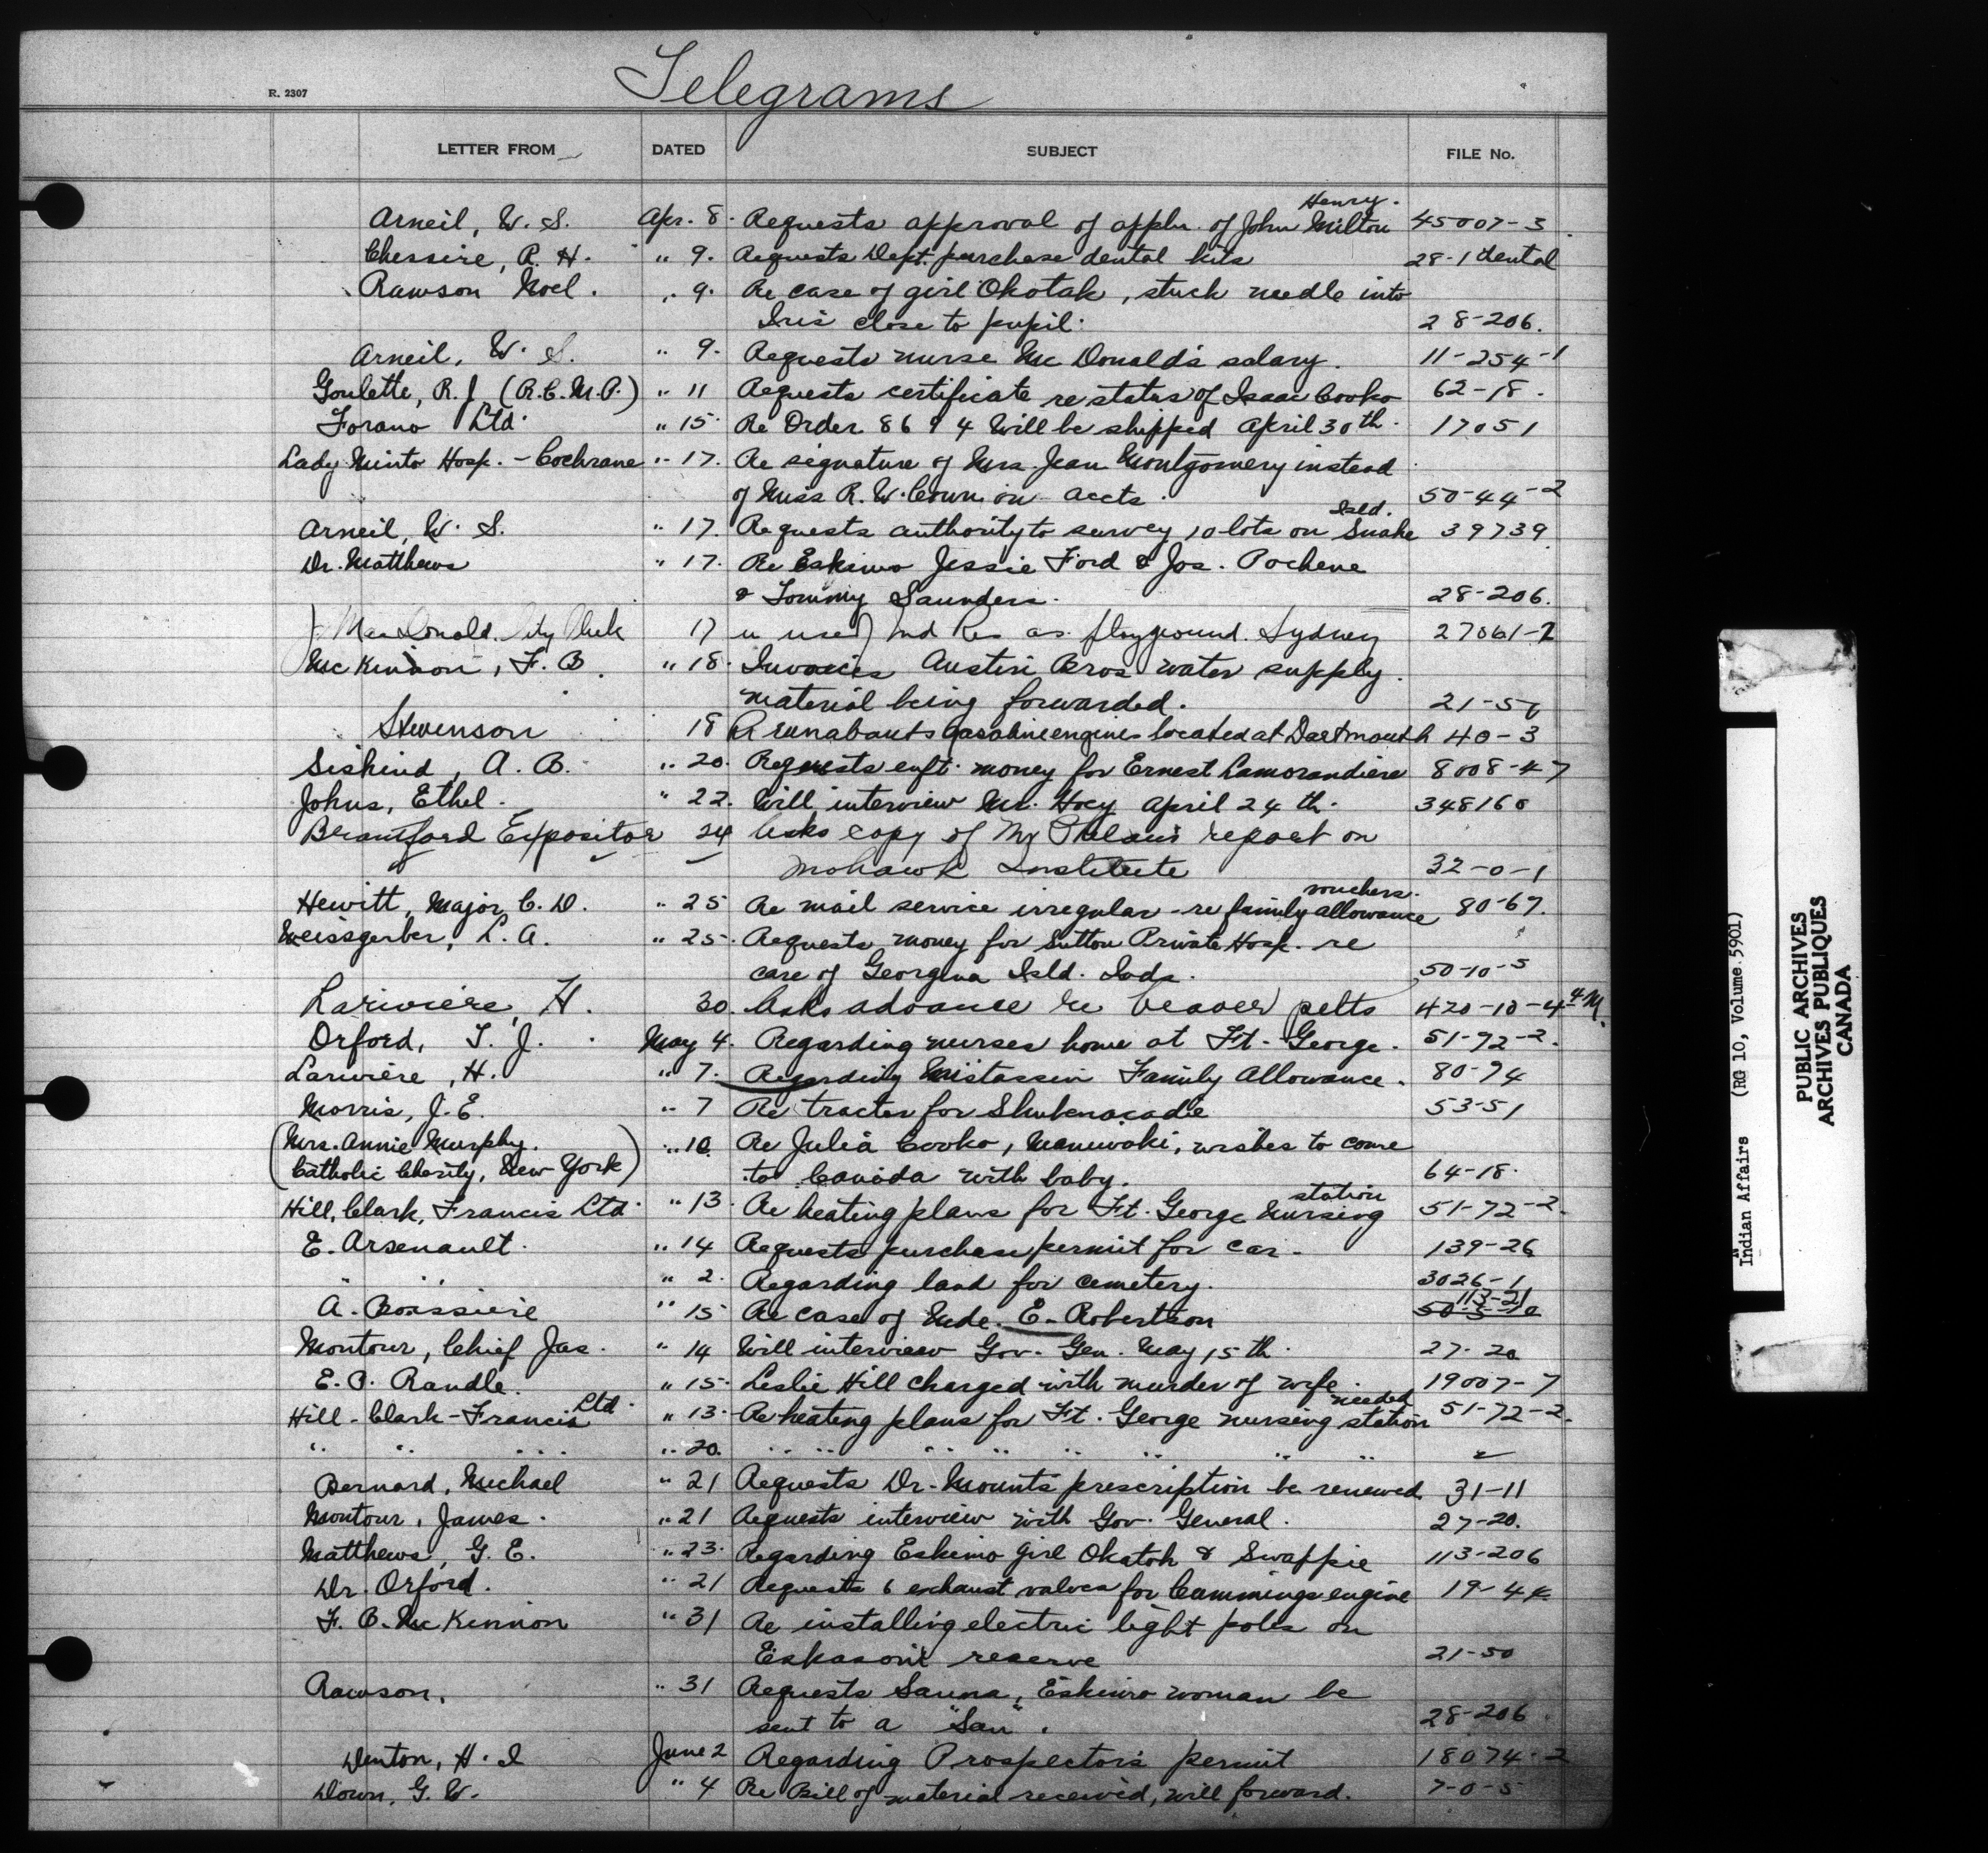 Telegrams
R. 2307
LETTER FROM DATED SUBJECT FILE No.
Henry.
Arneil, W. S. Apr. 8. Requests approval of appln. of John Milton 45007-3
Chessire, R. H. " 9. Requests Dept. purchase dental kits 28-1 dental
Rawson Noel. " 9. Re case of girl Okotak, stuck needle into
Iris close to pupil. 28-206.
Arneil, W. S. " 9. Requests nurse McDonald's salary. 11-254-1
Goulette, R. J. (R.C.M.P.) " 11 Requests certificate re status of Isaac Cooko 62-18.
Forano Ltd. " 15. Re Order 8694 Will be shipped April 30th. 17051
Lady Minto Hosp. - Cochrane " 17. Re signature of Mrs. Jean Montgomery instead
of Miss R. W. Coun on accts. 50-44-2
Isld.
Arneil, W. S. " 17. Requests authority to survey 10 lots on Snake 39739
Dr. Matthews " 17. Re Eskimo Jessie Ford & Jos. Pochene
& Tommy Saunders. 28-206.
J. MacDonald. City Clerk 17 re use of Ind Res as playground. Sydney 27061-2
McKinnon, F. B. " 18. Invoices Austin Bros water supply.
material being forwarded. 21-50
Stevenson 18 R runabouts Gasoline engines located at Dartmouth 40-3
Siskind, A. B. " 20. Requests enft. money for Ernest Lamorandiere 8008-47
Johns, Ethel. " 22. Will interview Mr. Hoey April 24th. 348160
Brantford Expositor 24 Asks copy of Mr Phelan's report on
Mohawk Institute 32-0-1
vouchers.
Hewitt, Major C. D. " 25 Re mail service irregular - re family allowance 80-67.
Weissgerber, L. A. " 25. Requests money for Sutton Private Hosp. re
care of Georgina Isld. Inds. 50-10-5
Lariviere, H. 30. Asks advance re beaver pelts 420-10-4-4 M.
Orford, T. J. May 4. Regarding nurses home at Ft. George. 51-72-2.
Lariviere, H. " 7. Regarding Mistassin Family Allowance. 80-74
Morris, J. E. " 7 Re tractor for Shubenacadie 53-51
(Mrs. Annie Murphy. " 10. Re Julia Cooko, Maniwaki, wishes to come
Catholic Charity, New York) to Canada with baby. 64-18.
station
Hill, Clark, Francis Ltd. " 13. Re heating plans for Ft. George Nursing 51-72-2.
E. Arsenault. " 14 Requests purchase permit for car. 139-26
" " " 2. Regarding land for cemetery. 3026-1
113-21
A. Boissiere " 15 Re case of Mde. E. Robertson
Montour, Chief Jas. " 14 Will interview Gov. Gen. May 15th. 27-20
E. P. Randle. " 15. Leslie Hill charged with murder of wife. 19007-7
Ltd. needed
Hill-Clark-Francis " 13. Re heating plans for Ft. George nursing station 51-72-2.
" " " " 20. " " " " " " " " "
Bernard, Michael " 21 Requests Dr. Mount's prescription be renewed 31-11
Montour, James. " 21 Requests interview with Gov. General. 27-20.
Matthews, G. E. " 23. Regarding Eskimo girl Okatok & Swappie 113-206
Dr. Orford. " 21 Requests 6 exhaust valves for Cummings engine 19-44
F. B. McKinnon " 31 Re installing electric light poles on
Eskasoni reserve 21-50
Rawson. " 31 Requests Sauna, Eskimo woman be
sent to a "San". 28-206.
Denton, H. I June 2 Regarding Prospector's permit 18074-2
Down, G. W. " 4 Re Bill of material received, will forward. 7-0-5
Indian Affairs (RG 10, Volume 5901)
PUBLIC ARCHIVES
ARCHIVES PUBLIQUES
CANADA